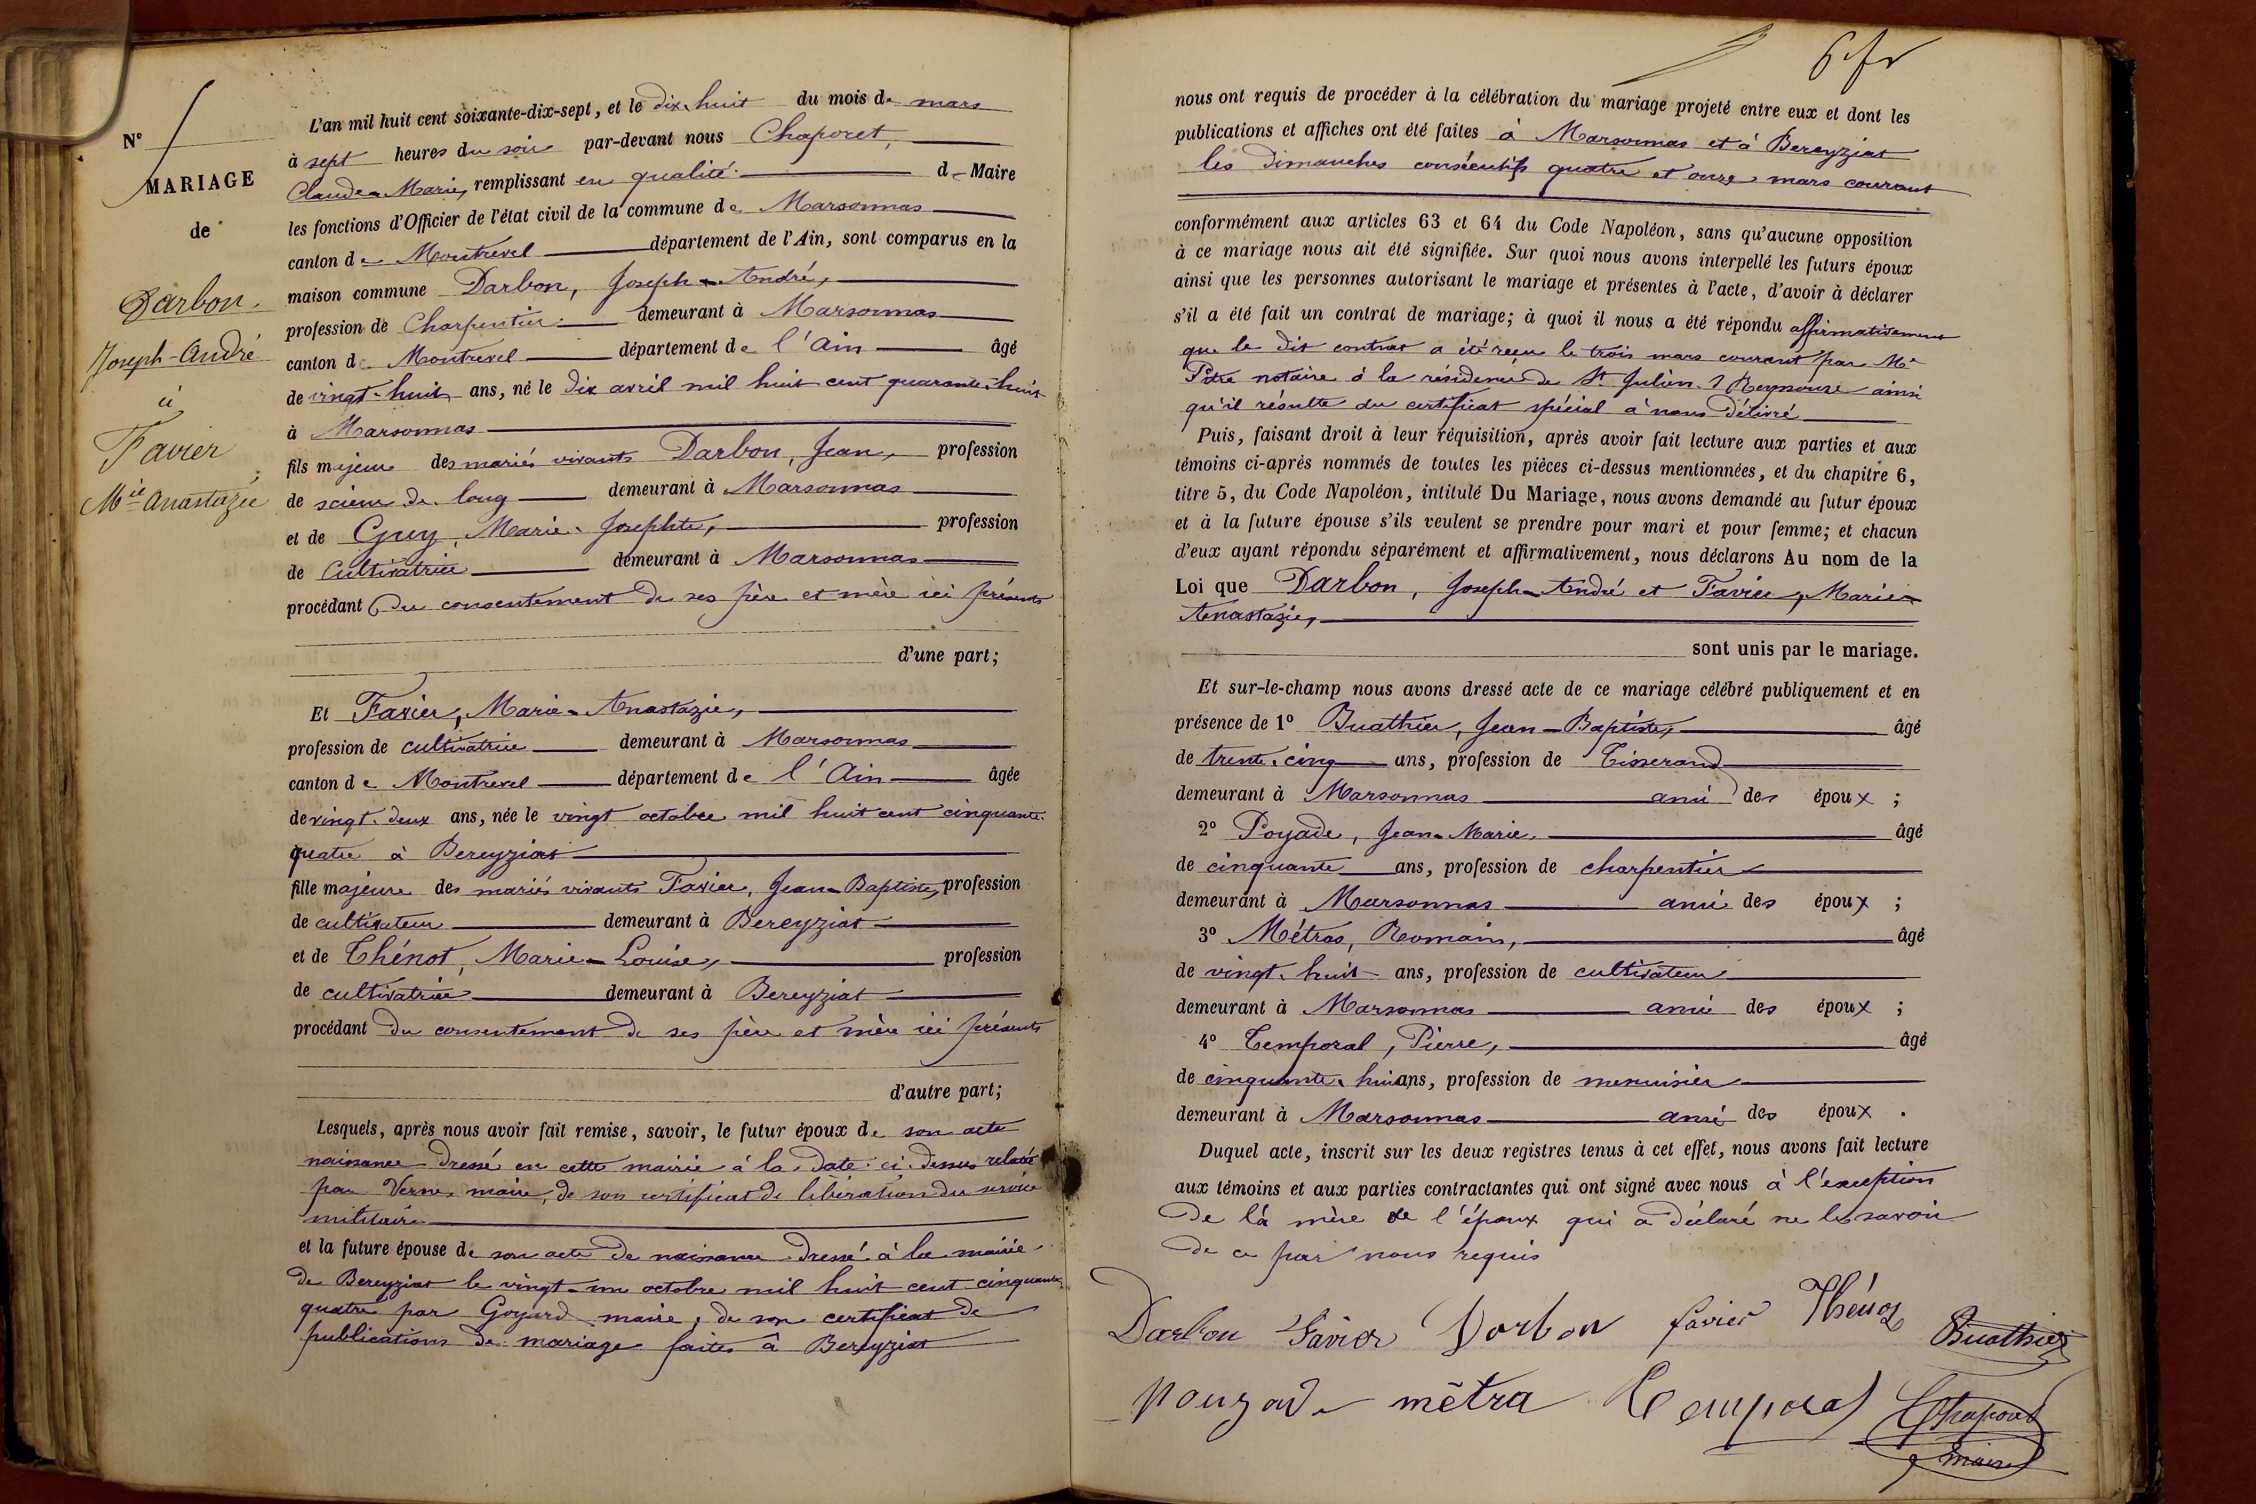 N°
MARIAGE
de
Darbon.
Joseph-André
à
Favier
Mie Anastazie
L'an mil huit cent soixante-dix-sept, et le dix-huit du mois de mars
à sept heures du soir par-devant nous Chaporet,
Claude-Marie, remplissant en qualité de Maire
les fonctions d'Officier de l'état civil de la commune de Marsonnas
canton de Montrevel département de l'Ain, sont comparus en la
maison commune Darbon, Joseph-André,
profession de Charpentier demeurant à Marsonnas
canton de Montrevel département de l'Ain âgé
de vingt-huit ans, né le dix avril mil huit cent quarante-huit
à Marsonnas
fils majeur des mariés vivants Darbon, Jean, profession
de scieur de long demeurant à Marsonnas
et de Guy, Marie-Josephte, profession
de Cultivatrice demeurant à Marsonnas
procédant Du consentement de ses père et mère ici présents
d'une part;
Et Favier, Marie-Anastazie,
profession de cultivatrice demeurant à Marsonnas
canton de Montrevel département de l'Ain âgée
de vingt-deux ans, née le vingt octobre mil huit cent cinquante-
quatre à Bereyziat
fille majeure des mariés vivants Favier, Jean-Baptiste, profession
de cultivateur demeurant à Bereyziat
et de Thénot, Marie-Louise, profession
de cultivatrice demeurant à Bereyziat
procédant du consentement de ses père et mère ici présents
d'autre part;
Lesquels, après nous avoir fait remise, savoir, le futur époux de son acte
naissance dressé en cette mairie à la date ci-dessus relatée
par Verne, maire, de son certificat de libération du service
militaire
et la future épouse de son acte de naissance dressé à la mairie
de Bereyziat le vingt-un octobre mil huit cent cinquante-
quatre par Goyard maire, de son certificat de
publications de mariage faites à Bereyziat
nous ont requis de procéder à la célébration du mariage projeté entre eux et dont les
publications et affiches ont été faites à Marsonnas et à Bereyziat
les dimanches consécutifs quatre et onze mars courant
conformément aux articles 63 et 64 du Code Napoléon, sans qu'aucune opposition
à ce mariage nous ait été signifiée. Sur quoi nous avons interpellé les futurs époux
ainsi que les personnes autorisant le mariage et présentes à l'acte, d'avoir à déclarer
s'il a été fait un contrat de mariage; à quoi il nous a été répondu affirmativement
que le dit contrat a été reçu le trois mars courant par Me
notaire à la résidence de St Julien s/ Reyssouze ainsi
qu'il résulte du certificat spécial à nous délivré
Puis, faisant droit à leur réquisition, après avoir fait lecture aux parties et aux
témoins ci-après nommés de toutes les pièces ci-dessus mentionnées, et du chapitre 6,
titre 5, du Code Napoléon, intitulé Du Mariage, nous avons demandé au futur époux
et à la future épouse s'ils veulent se prendre pour mari et pour femme; et chacun
d'eux ayant répondu séparément et affirmativement, nous déclarons Au nom de la
Loi que Darbon, Joseph-André et Favier, Marie-
Anastazie,
sont unis par le mariage.
Et sur-le-champ nous avons dressé acte de ce mariage célébré publiquement et en
présence de 1° Buathier, Jean-Baptiste, âgé
de trente-cinq ans, profession de Tisserand
demeurant à Marsonnas ami des époux ;
2° Poyade, Jean-Marie, âgé
de cinquante ans, profession de charpentier
demeurant à Marsonnas ami des époux ;
3° Métras, Romain, âgé
de vingt-huit ans, profession de cultivateur
demeurant à Marsonnas ami des époux ;
4° Temporal, Pierre, âgé
de cinquante-huit ans, profession de menuisier
demeurant à Marsonnas ami des époux .
Duquel acte, inscrit sur les deux registres tenus à cet effet, nous avons fait lecture
aux témoins et aux parties contractantes qui ont signé avec nous à l'exception
de la mère de l'époux qui a déclaré ne le savoir
de ce par nous requis
Darbon Favier Darbon favier Thénoz Buathier
pouyade mêtra Temporal Chaporet
maire